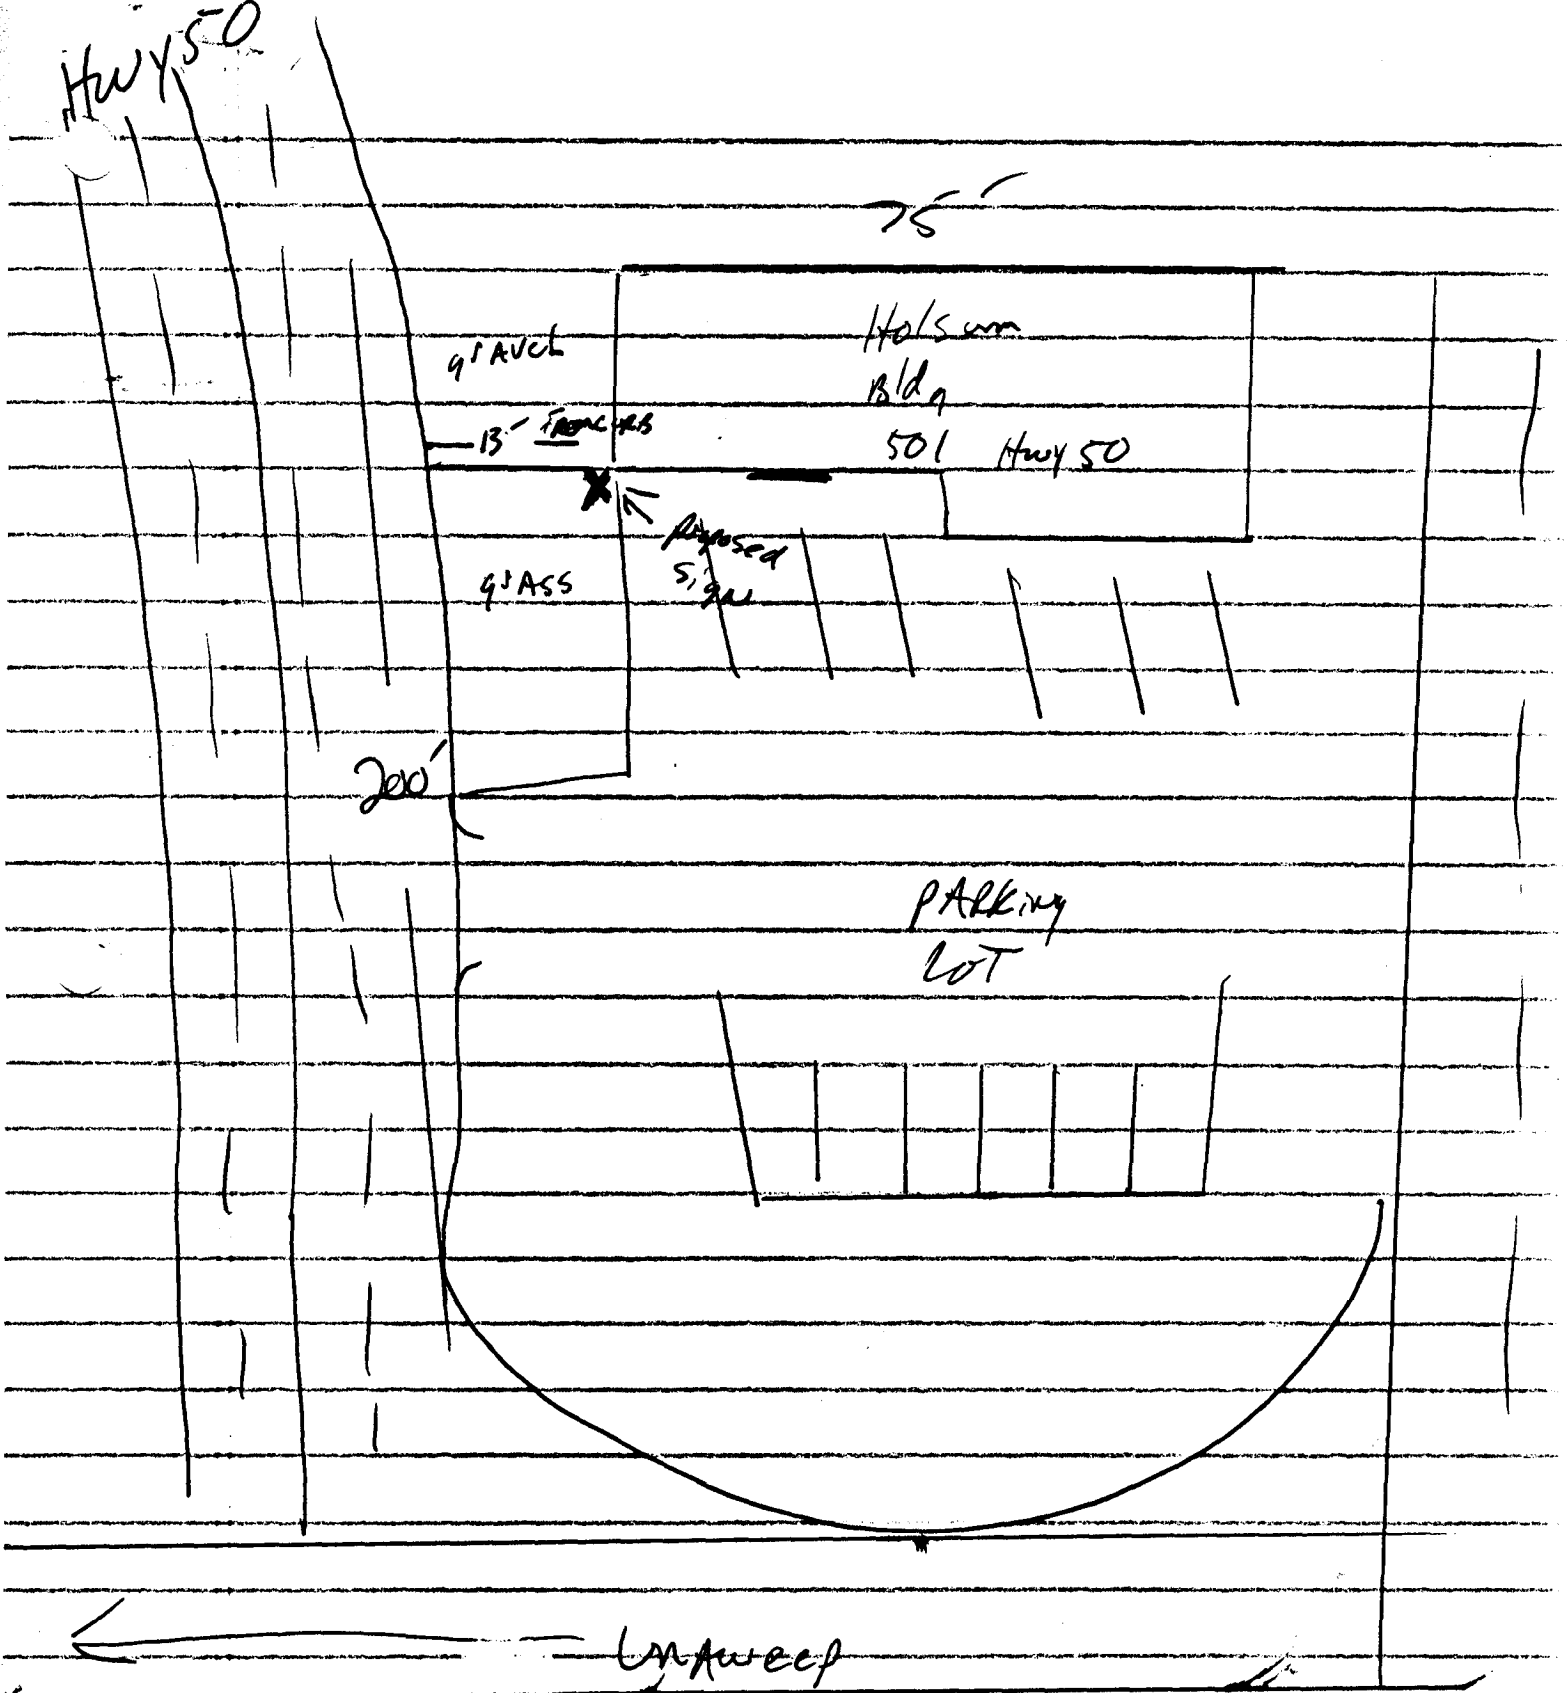 Hwy 50
75'
Holsum
Bldg
501 Hwy 50
gravel
13' From CURB
Proposed
Sign
grass
200'
PARKing
LOT
UnAweep